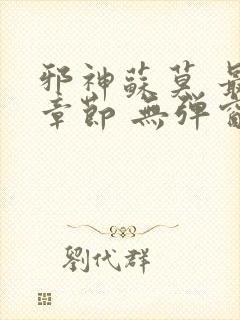 邪神蘇莫 最
章節 無彈窗
劉代群